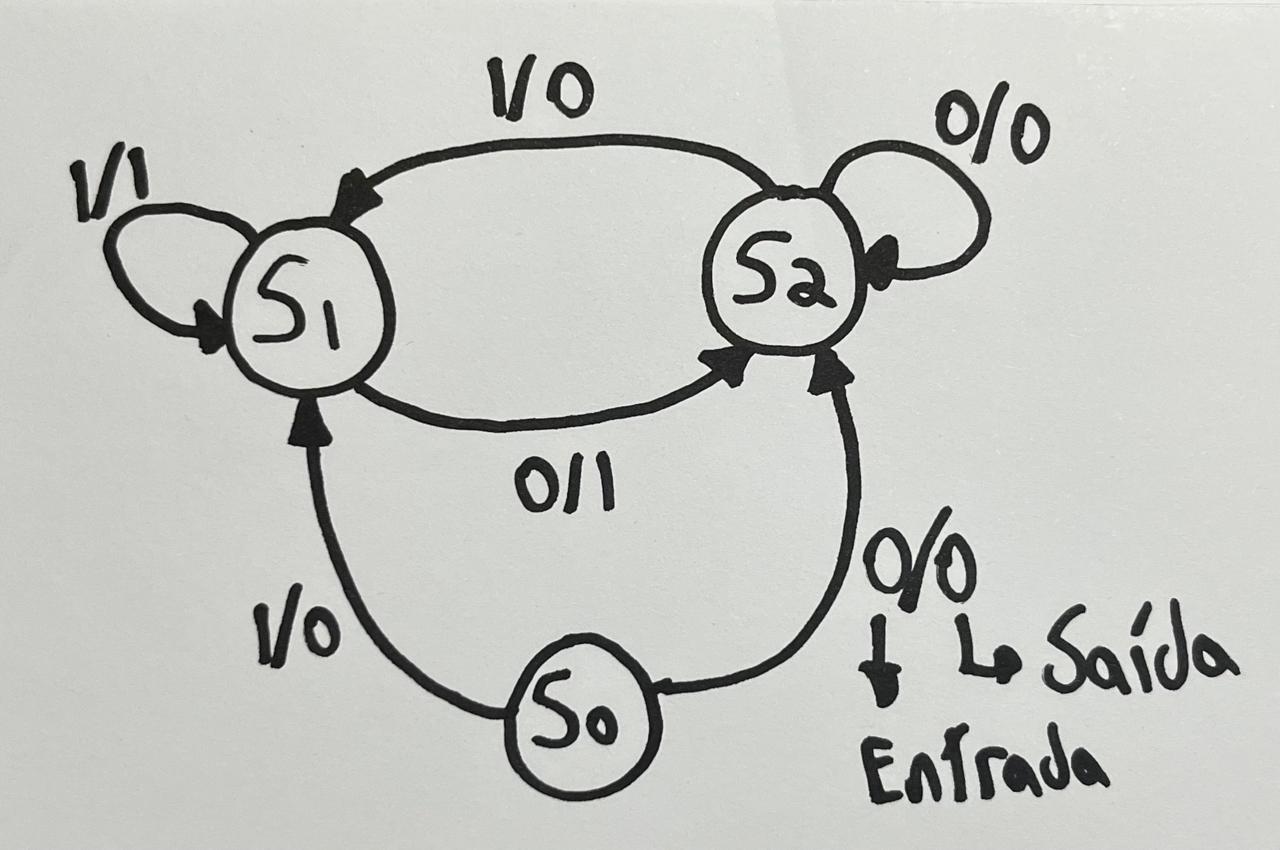 1/0
0/0
1/1
S1
S2
0/1
0/0
1/0
Saída
S0
Entrada